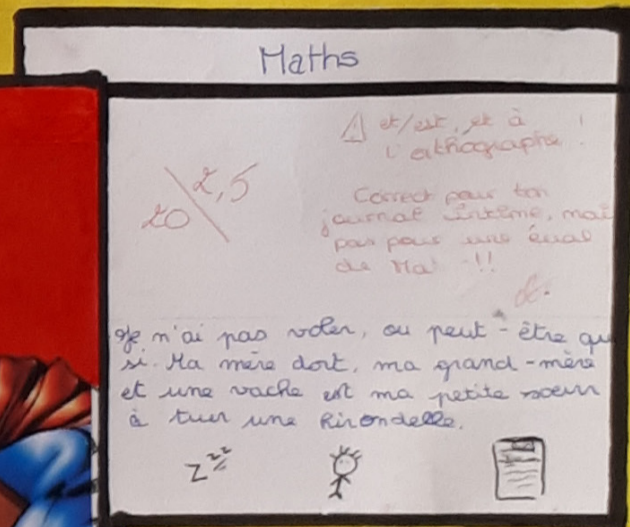 Maths
⚠ et/est, et à !
l'orthographe !
2,5
20
Correct pour ton
journal intime, mai
pas pour une éval
de Mat !!
Je n'ai pas voler, ou peut-être qu
si. Ma mère dort, ma grand-mère
et une vache est ma petite soeur
à tuer une hirondelle.
zzz